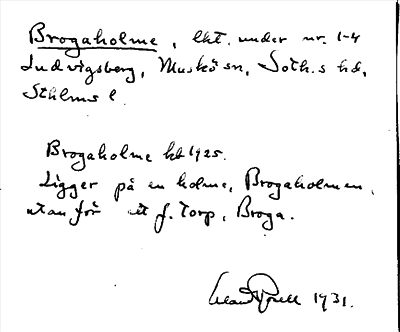 Brogaholme, lht. under nr. 1-4
Ludvigsberg, Muskö sn, Soth.s hd,
Sthlms l.
Brogaholme hb 1925.
Ligger på en holme, Brogaholmen,
utanför ett f. torp, Broga.
1931.